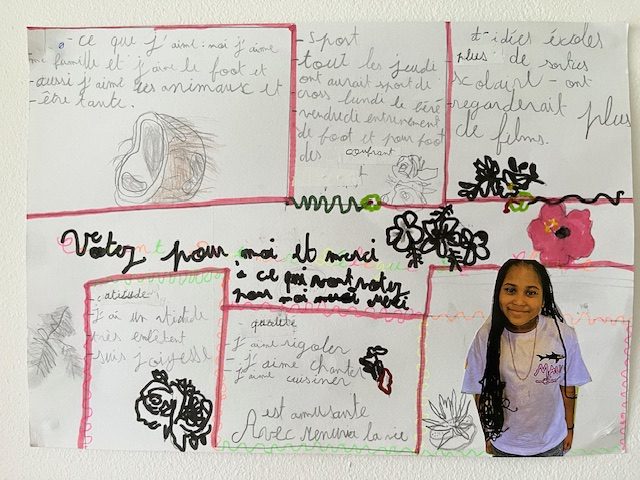 - ce que j'aime. moi j'aime
ma famille et j'aime le foot et
- aussi j'aime les animaux et
- être tante.
- Sport
- tout les jeudi
ont aurait sport de
cross lundi le
entrainement
de foot et pour foot
des confrant
t-idées écoles
plus de sorties
scolart - ont
- regarderait plus
de films.
Votez pour moi et merci
a ce qui vont votez
pour moi merci merci
- j'ai un
très entêtent
- suis
- qualité
- J'aime rigoler
- J'aime chanter
J'aime cuisiner
est amusante
Avec la vie